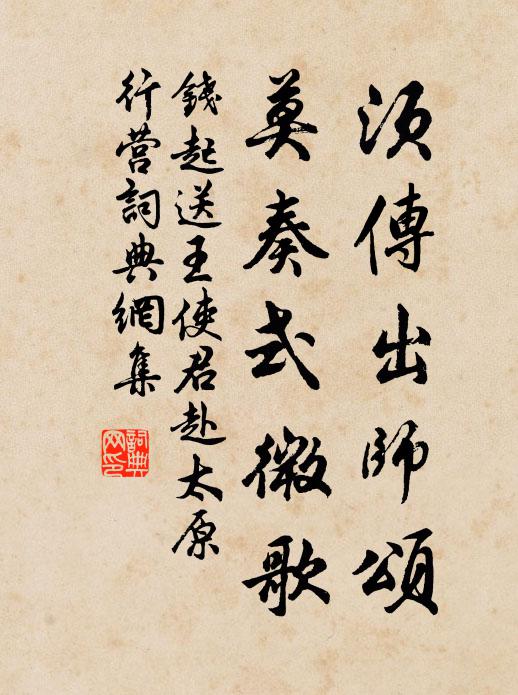 須傳出師頌
莫奏式微歌
錢起送王使君赴太原
行營詞典網集
詞典
网印